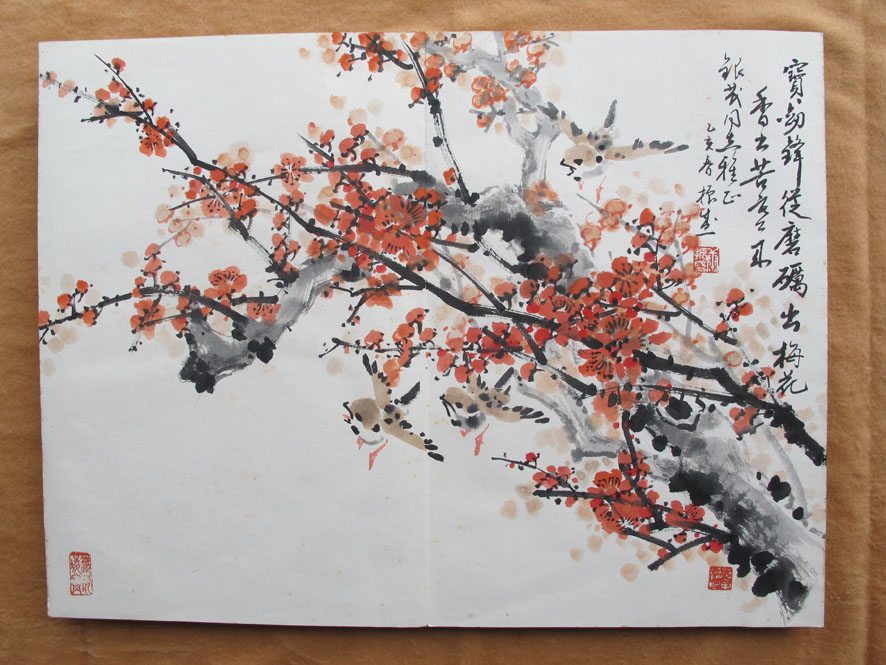 寶劍鋒從磨礪出梅花
香自苦寒來
銀茂同志雅正
乙亥春振